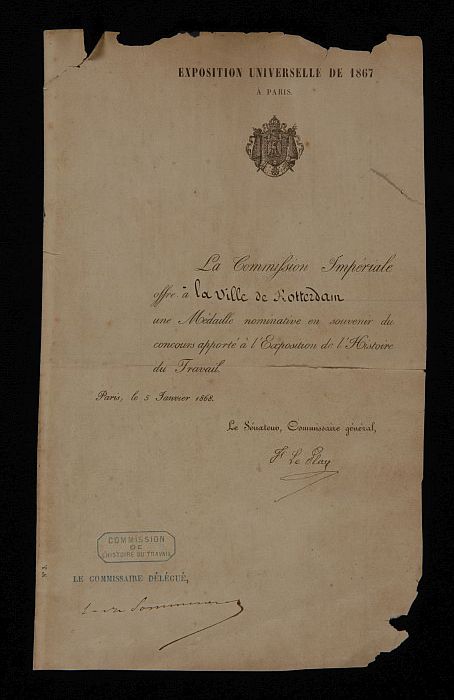 EXPOSITION UNIVERSELLE DE 1867
À PARIS.
La Commission Impériale
offre à la Ville de Rotterdam
une Médaille nominative en souvenir du
concours apporté à l'Exposition de l'Histoire
du Travail.
Paris, le 5 Janvier 1868.
Le Sénateur, Commissaire général,
F. Le Play
COMMISSION
DE
L'HISTOIRE DU TRAVAIL
LE COMMISSAIRE DÉLÉGUÉ,
Sommerard